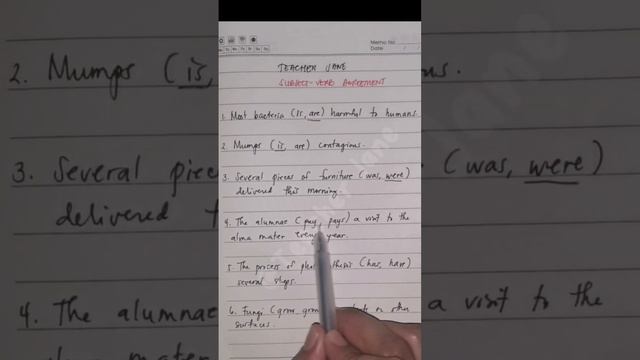 Memo No.
Date / /
TEACHER JANE
SUBJECT-VERB AGREEMENT
1. Most bacteria (is, are) harmful to humans.
2. Mumps (is, are) contagious.
3. Several pieces of furniture (was, were)
delivered this morning.
4. The alumnae (pay, pays) a visit to the
alma mater every year.
5. The process of (has, have)
several steps.
6. Fungi (grow, on other
surfaces.
2. Mumps (is,
3. Several (was, were)
delivered
4. The alumnae a visit to the